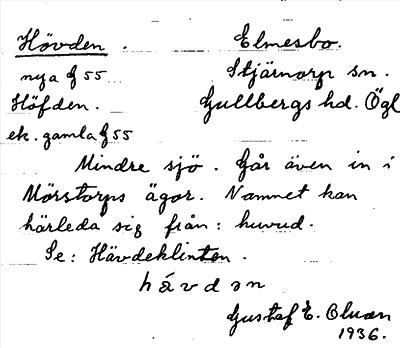 Hövden. Elmesbo.
nya G 55 Stjärnorp sn.
Höfden. Gullbergs hd. Ögl
ek. gamla G 55
Mindre sjö. Går även in i
Mörstorps ägor. Namnet kan
härleda sig från: huvud.
Se: Hävdeklinten.
hävdən
Gustaf E.
1936.